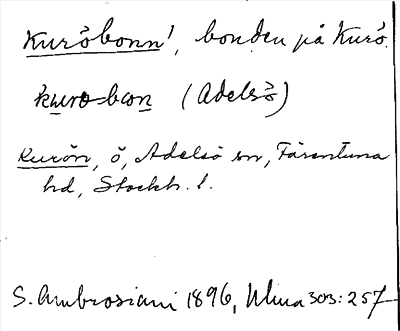 Kuröbonn', bonden på Kurö.
kuro-bon (Adelsö)
Kurön, ö, Adelsö sn, Färentuna
hd, Stockh. l.
S. Ambrosiani 1896, Ulma 303:257